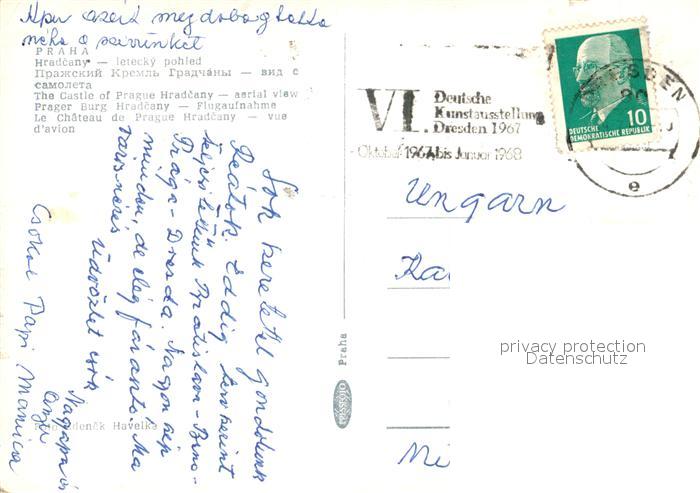 Apu azért megdobogtatta
néha a szívünket
PRAHA
Hradčany — letecký pohled
Пражский Кремль Градчаны — вид с
самолета
The Castle of Prague Hradčany — aerial view
Prager Burg Hradčany — Flugaufnahme
Le Château de Prague Hradčany — vue
d'avion
Sok szeretettel gondolunk
Reátok. Eddig terv szerint
teljesítettük Bratislava - Brno -
Prága - Drezda. Nagyon szép
minden, de elég fárasztó. Ma
városnézés
Üdvözlet
Csókol Papi Manica
Nagyapa
Anyu
Foto Zdeněk Havelka
Praha
PRESSFOTO
VI. Deutsche
Kunstausstellung
Dresden 1967
Oktober 1967 bis Januar 1968
DRESDEN
e
10
DEUTSCHE
DEMOKRATISCHE REPUBLIK
Ungarn
privacy protection
Datenschutz